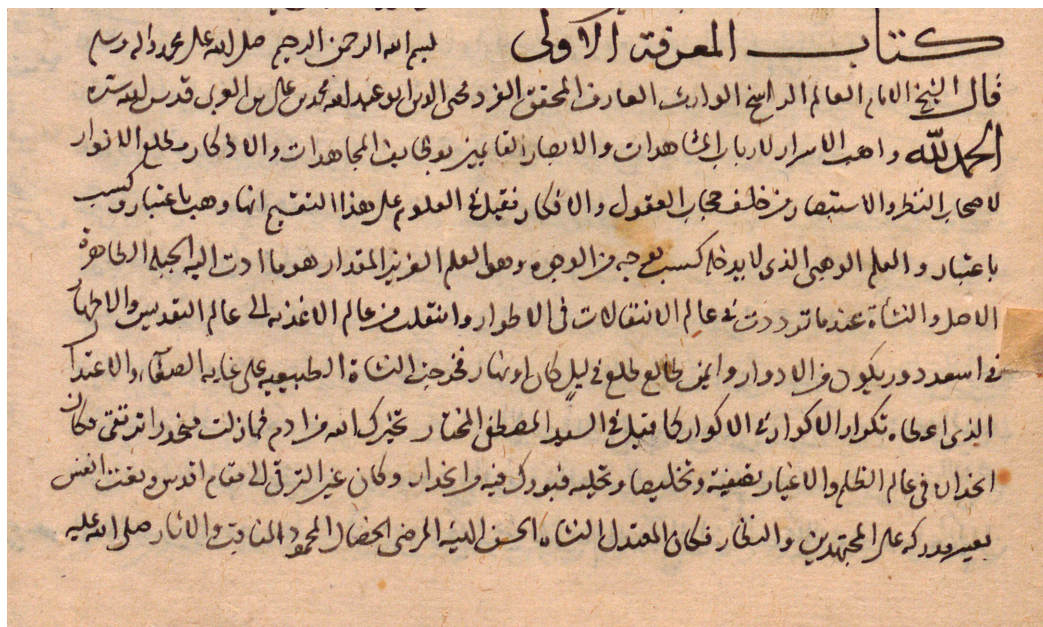 كتاب المعرفة الاولى بسم الله الرحمن الرحيم صلى الله على محمد واله وسلم
قال الشيخ الامام العالم الراسخ الوارث العارف المحقق الفرد محيى الدين ابو عبد الله محمد بن على بن العربى قدس الله سره
الحمد لله واهب الاسرار لارباب المشاهدات والابصار القايمين بوظايف المجاهدات والاذكار ومطلع الانوار
لاصحاب النظر والاستبصار من خلف حجاب العقول والافكار فقيل فى العلوم على هذا التقسيم انها وهب باعتبار وكسب
باعتبار والعلم الوهبى الذى لا يدخله كسب بوجه من الوجوه وهو العلم العزيز المقدار هو ما ادت اليه الجبله الطاهرة
الاصل والنشاة عندما ترددت فى عالم الانتقالات فى الاطوار وانتقلت من عالم الاغذيه الى عالم التقديس والاطهار
فى اسعد دور يكون من الادوار وايمن طالع طلع فى ليل كان او نهار فخرجت النشاة الطبيعيه على غايه الصفاء والاعتدال
الذى اعطاه تكرار الاكوار فى الاكوار كما قيل فى السيد المصطفى المختار تخيرك الله من ادم فما زلت منحدرا ترتقى فكان
انحداره فى عالم الظلم والاغيار تصفية وتخليصا وتحليه فبورك فيه من انحدار وكان عين الترقى الى مقام اقدس ونعت انفس
على المجتهدين والنظار فكان المعتدل النشاه الحسن المرضى الخصال المحمود المناقب والاثار صلى الله عليه